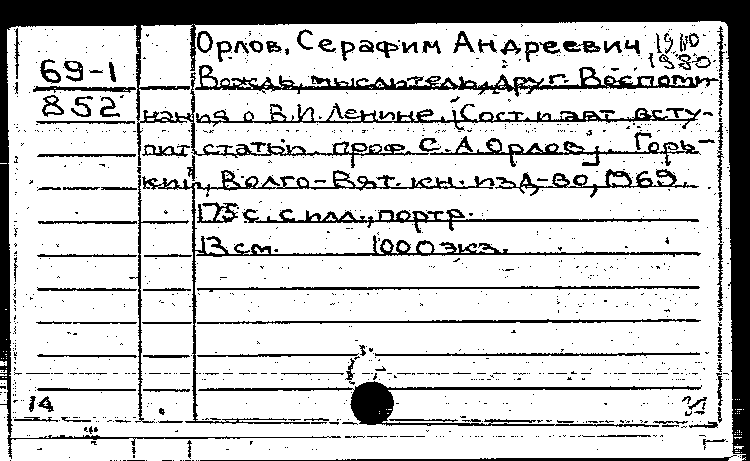 Орлов, Серафим Андреевич 1910
1980
69-1
Вождь, мыслитель, друг. Воспоми-
852
нания о В.И. Ленине. [Сост. и авт. всту-
пит. статьи проф. С.А. Орлов]. Горь-
кий, Волго-Вят. кн. изд-во, 1969.
175 с. с илл., портр.
13 см. 1000 экз.
14